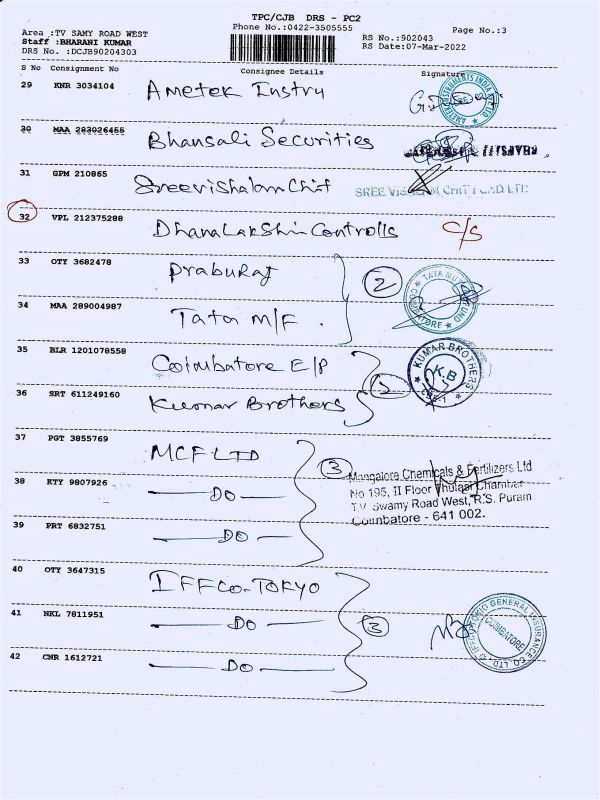 TPC/CJB DRS - PC2
Phone No.:0422-3505555
Page No.:3
Area :TV SAMY ROAD WEST
Staff :BHARANI KUMAR
DRS No. :DCJB90204303
RS No.:902043
RS Date:07-Mar-2022
S No Consignment No Consignee Details Signature
29 KNR 3034104 Ametek Instru
30 MAA 283026455 Bhansali Securities
31 GPM 210865 Sreevishalam Chit
SREE VISHALAM CHIT FUND LTD
32 VPL 212375288 DhanaLakshmi Controlls C/S
33 OTY 3682478 PrabuRaj 2
TATA MUTUAL FUND
COIMBATORE
34 MAA 289004987 Tata M/F .
35 BLR 1201078558 Coimbatore E/P
KUMAR BROTHERS
K.B
CBE-1
36 SRT 611249160 Kumar Brothers
37 PGT 3855769 MCF LTD 3
Mangalore Chemicals & Fertilizers Ltd
No 195, II Floor Thulasi Chamber
T.V. Swamy Road West, R.S. Puram
Coimbatore - 641 002.
38 KTY 9807926 DO
39 PRT 6832751 DO
40 OTY 3647315 IFFCO-TOKYO
41 NKL 7811951 DO 3
IFFCO TOKIO GENERAL INSURANCE CO. LTD.
COIMBATORE
42 CNR 1612721 DO